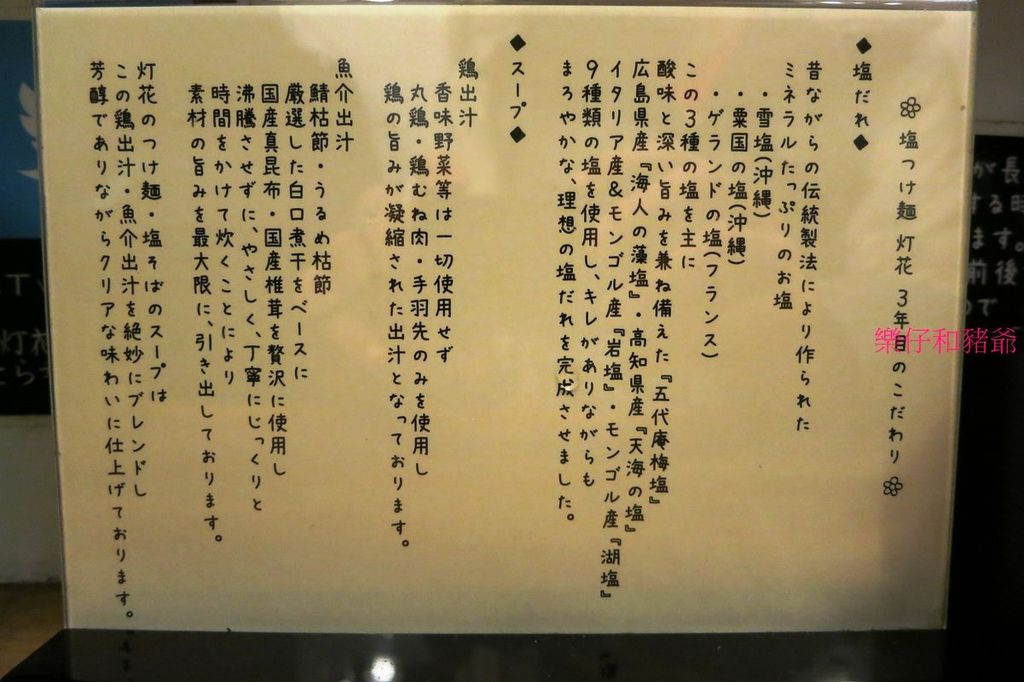 塩つけ麺 灯花 3年目のこだわり
◆塩だれ◆
昔ながらの伝統製法により作られた
ミネラルたっぷりのお塩
・雪塩(沖縄)
・粟国の塩(沖縄)
・ゲランドの塩(フランス)
この3種の塩を主に
酸味と深い旨みを兼ね備えた『五代庵梅塩』
広島県産『海人の藻塩』・高知県産『天海の塩』
イタリア産&モンゴル産『岩塩』・モンゴル産『湖塩』
9種類の塩を使用し、キレがありながらも
まろやかな、理想の塩だれを完成させました。
◆スープ◆
鶏出汁
香味野菜等は一切使用せず
丸鶏・鶏むね肉・手羽先のみを使用し
鶏の旨みが凝縮された出汁となっております。
魚介出汁
鯖枯節・うるめ枯節
厳選した白口煮干をベースに
国産真昆布・国産椎茸を贅沢に使用し
沸騰させずに、やさしく、丁寧にじっくりと
時間をかけて炊くことにより
素材の旨みを最大限に、引き出しております。
灯花のつけ麺・塩そばのスープは
この鶏出汁・魚介出汁を絶妙にブレンドし
芳醇でありながらクリアな味わいに仕上げております。
樂仔和豬爺
が長
する時
ます。
前後
ので
灯花